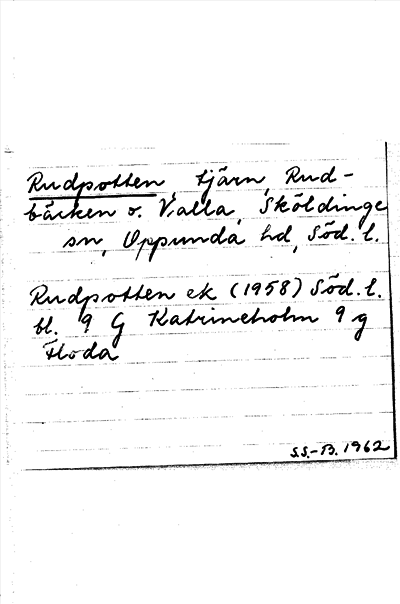 Rudpotten, tjärn, Rud-
bäcken o. Valla, Sköldinge
sn, Oppunda hd, Söd. l.
Rudpotten ek (1958) Söd. l.
bl. 9 G Katrineholm 9 g
Floda
S.S.-B. 1962